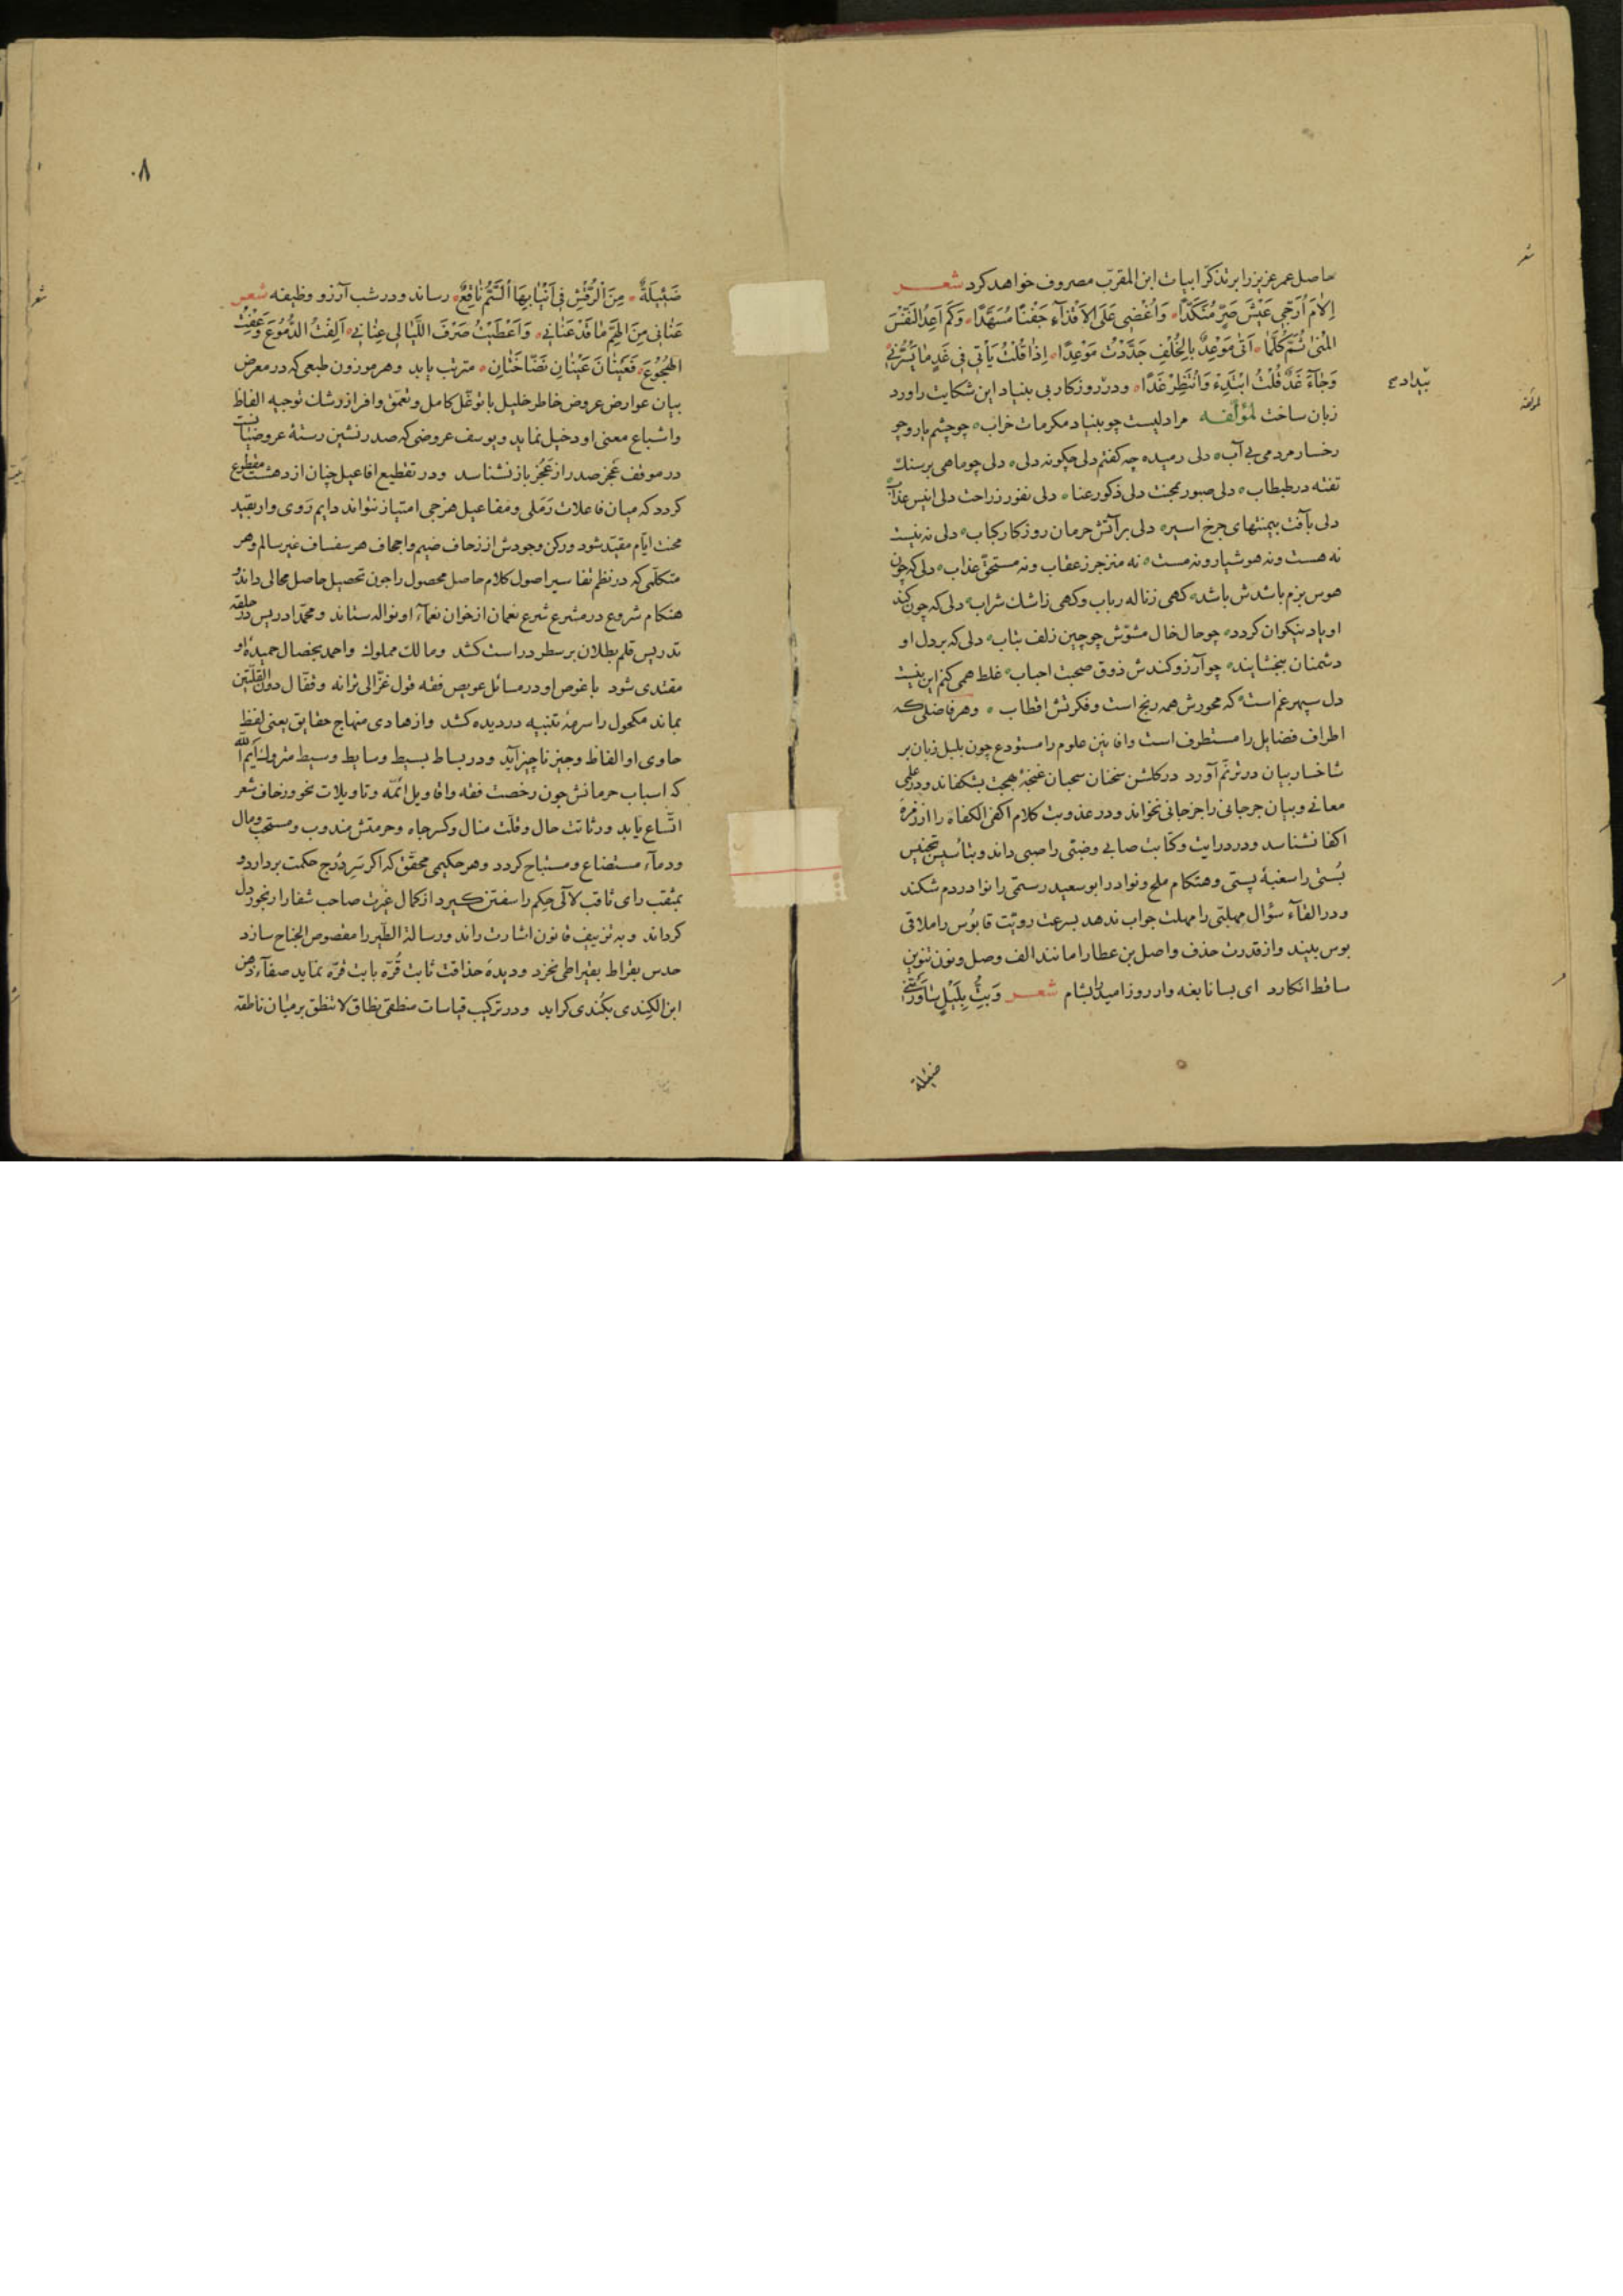 حاصل عمر عزیز را بر تذکّر ابیات ابن المقرّب مصروف خواهد کرد شعر
اِلامَ اُرَجّی عَیْشَ ضُرٍّ مُنَکَّدًا وَاُغْضِی عَلَی الاَقْذآءِ جَفْنًا مُسَهَّدًا وَکَم اَعِدُ النَّفْسَ
المُنیٰ ثُمَّ کُلَّما اَتیٰ مَوْعِدٌ بِالخُلْفِ جَدَّدْتُ مَوْعِدًا اِذا قُلْتُ یَأتی فی غَدٍ ما یَسُرُّنی
وَجآءَ غَدٌ قُلْتُ ابْتَدِءْ وَانْتَظِرْ غَدًا ودر روزکار بی بنیاد این شکایت را ورد
زبان ساخت لمؤلّفه مرا دلیست چو بنیاد مکرمات خراب چو چشم یار و چو
رخسار مردمی بی آب دلی رمیده چه کفتم دلی چکونه دلی دلی چو ماهی بر سنك
تفته در طبطاب دلی صبور بمحنت دلی ذکور عنا دلی نفور ز راحت دلی انیس عذاب
دلی بآفت بیمنتهای چرخ اسیر دلی بر آتش حرمان روزکار کباب دلی نه نیست
نه هست ونه هوشیار ونه مست نه منزجر ز عقاب ونه مستحقّ عذاب دلی که چون
هوس بزم باشدش باشد کهی ز ناله رباب وکهی ز اشك شراب دلی که چون کند
او یاد نیکوان کردد چو حال خال مشوّش چو چین زلف بتاب دلی که بر دل او
دشمنان ببخشایند چو آرزو کندش ذوق صحبت احباب غلط همی کنم این نیست
دل سپهر غم است که محورش همه رنج است وفکرتش اقطاب وهر فاضلی که
اطراف فضایل را مستطرف است وافانین علوم را مستودع چون بلبل زبان بر
شاخسار بیان در ترنّم آورد در کلشن سخنان سحبان غنچهٔ بهجت بشکفاند ودر علمی
معانی وبیان جرجانی را جز جانی نخواند ودر عذوبت کلام اکفی الکفاه را از زمرهٔ
اکفا نشناسد ودر درایت وکتابت صابی وضبّی را صبی داند وبتأسیس تجنیس
بُستی را سغبهٔ پستی وهنکام ملح ونوادر ابو سعید رستمی را نوا در دم شکند
ودر القآء سؤال مهلّبی را مهلت جواب ندهد بسرعت رویّت قابُوس را ملاقی
بوس بیند واز قدرت حذف واصل بن عطا را مانند الف وصل ونون تنوین
ساقط انکارد ای بسا نابغه وار روز امید را بشام شعر وَبِتُّ بِلَیْلٍ ساوَرَتْنی
ضئیلة
شعر
لمؤلفه
٠٨
ضَئِیلَةٌ مِنَ الرُّقْشِ فی اَنْیابِهَا السُّمُّ ناقِعٌ رساند ودر شب آرزو وظیفه شعر
عَنانی مِنَ الهَمِّ ما قَدْ عَنانی وَاَعْطَیْتُ صَرْفَ اللَّیالی عِنانی اَلِفْتُ الدُّمُوعَ وَعِفْتُ
الهُجُوعَ فَعَیْنانَ عَیْنانِ نَضّاخَتانِ مترتب یابد وهر موزون طبعی که در معرض
بیان عوارض عروض خاطر خلیل با توغّل کامل وتعمّق وافر از رشات توجیه الفاظ
واشباع معنی او دخیل نماید ویوسف عروضی که صدر نشین رستهٔ عروضیا نست
در موقف عجز صدر از عَجُز باز نشناسد ودر تقطیع افاعیل چنان از دهشت مقطوع
کردد که میان فاعلات رَمَلی ومفاعیل هزجی امتیاز نتواند دایم رَوی وار بقید
محنت ایّام مقیّد شود ورکن وجودش از زحاف ضیم واجحاف هر سفساف غیر سالم وهر
متکلّمی که در نظم تفاسیر اصول کلام حاصل محصول را چون تحصیل حاصل محالی داند و
هنکام شروع در مشرع شرع نعمان از خوان نعمآء او نواله ستاند ومحمّد ادریس در حلقهٔ
تدریس قلم بطلان بر سطر دراست کشد ومالك مملوك واحمد بخصال حمیدهٔ او
مقتدی شود با غوص او در مسائل عویص فقه قول غزّالی ترانه وقفّال دون القلّتین
نماند مکحول را سرمهٔ تنبیه در دیده کشد واز هادی منهاج حقایق یعنی لفظ
حاوی او الفاظ وجیز ناچیز آید ودر بساط بسیط وسایط وسیط متروك اَیْمُ اللّٰه
که اسباب حرمانش چون رخصت فقه واقاویل ائمّه وتاویلات نحو وزحاف شعر
اتّساع یابد ورثاثت حال وقلّت منال وکسر جاه وحرمتش مندوب ومستحب ومال
ودمآء مستضاع ومستباح کردد وهر حکیمی محقّق که اکر سَرِ دُرج حکمت بردارد و
بمثقب رای ثاقب لآلی حِکم را سفتن کیرد از کمال غیرت صاحب شفا را رنجور دل
کرداند وبه تزییف قانون اشارت راند ورسالة الطّیر را مقصوص الجناح سازد
حدس بقراط بقیراطی نخرد ودیدهٔ حذاقت ثابت قُرّه بابت قرّه نماید صفآء ذهن
ابن الکِندی بکُندی کراید ودر ترکیب قیاسات منطقی نطاق لا تنطق بر میان ناطقه
شعر